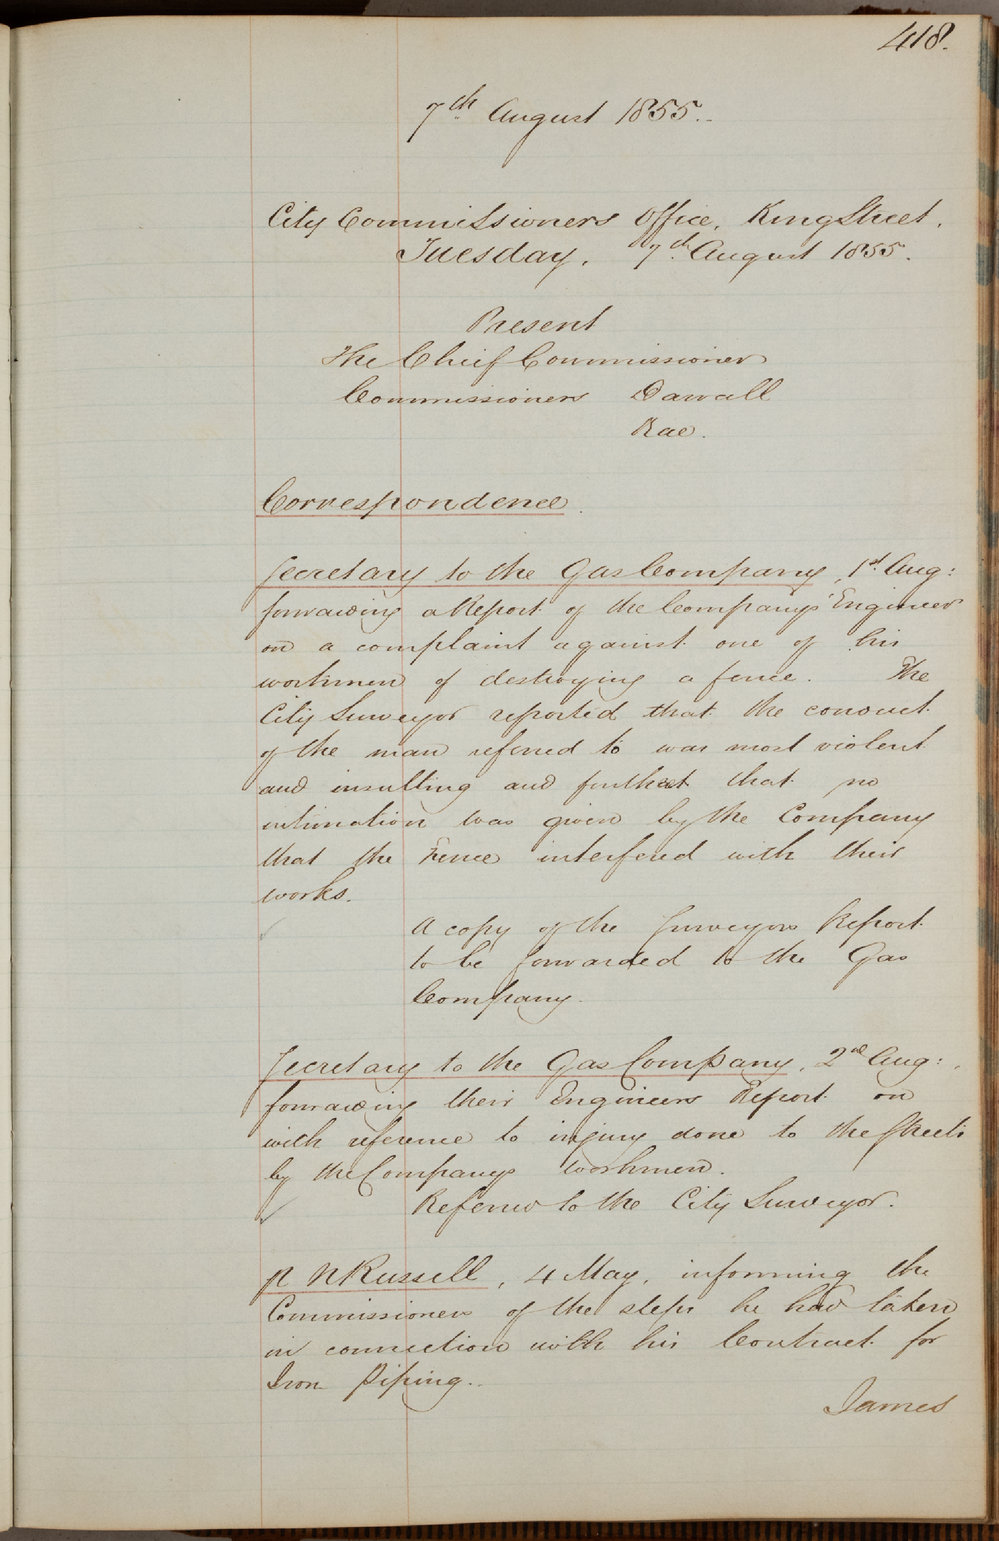 418.
7th August 1855.
City Commissioners Office, King Street,
Tuesday, 7th August 1855.
Present
The Chief Commissioner
Commissioners Darvall
Rae.
Correspondence.
Secretary to the Gas Company, 1st Aug:
forwarding a Report of the Company's Engineer
on a complaint against one of his
workmen of destroying a fence. The
City Surveyor reported that the conduct
of the man referred to was most violent
and insulting and further that no
intimation was given by the Company
that the Fence interfered with their
works.
A copy of the Surveyors Report
to be forwarded to the Gas
Company.
Secretary to the Gas Company, 2nd Aug:,
forwarding their Engineers Report on
with reference to injury done to the Streets
by the Companys workmen.
Referred to the City Surveyor.
P N Russell, 4 May, informing the
Commissioners of the steps he had taken
in connection with his Contract for
Iron Piping.
James